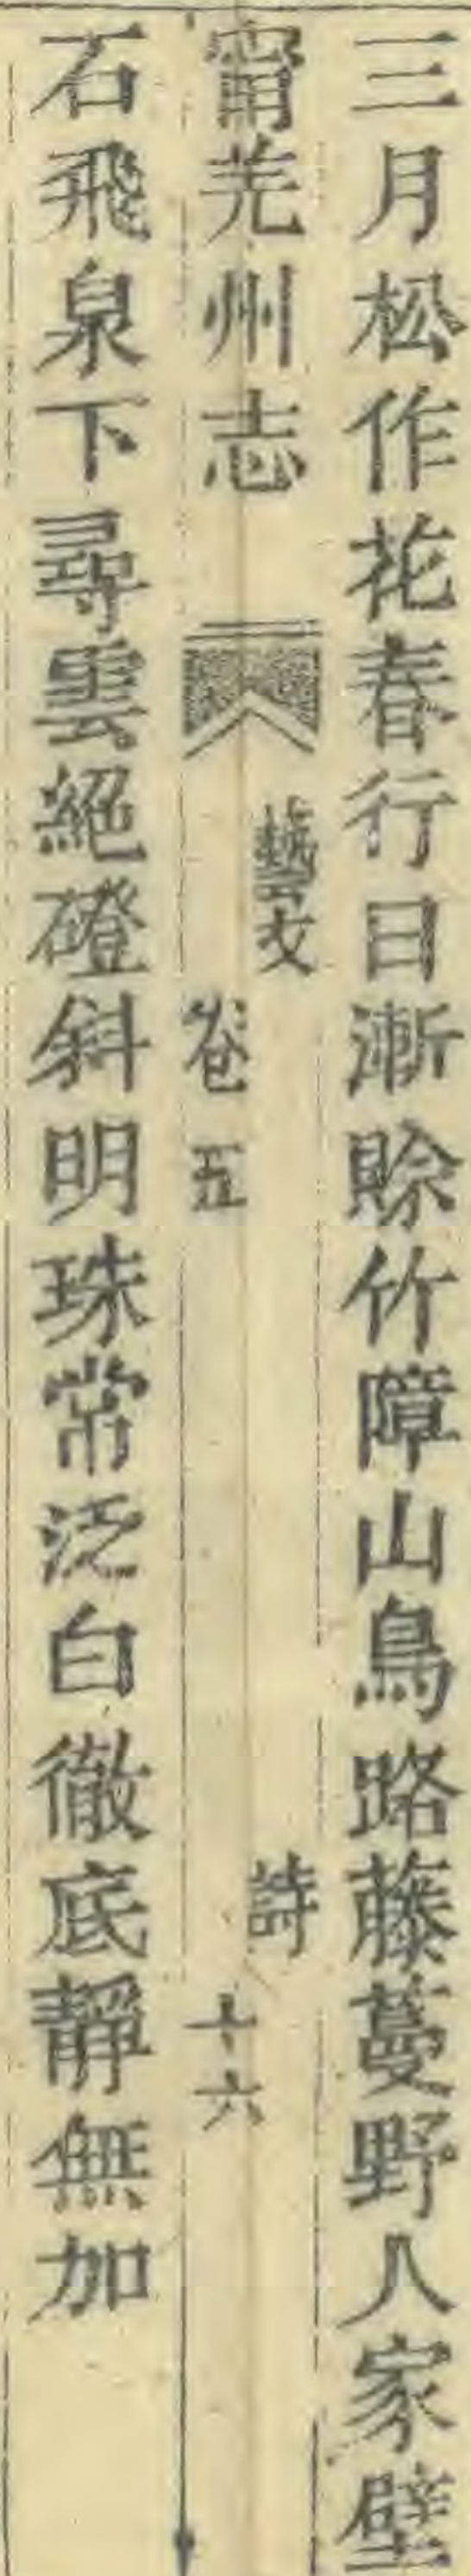 三月松作花春行日漸賒竹障山鳥路藤蔓野人家壁
甯羌州志
藝文
卷五
詩
十六
石飛泉下尋雲絕磴斜明珠常泛白徹底靜無加